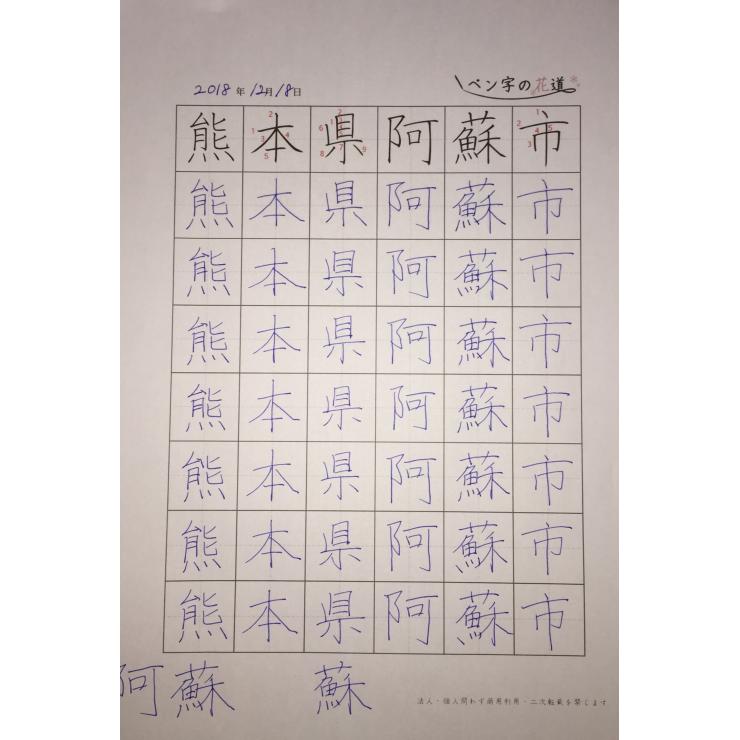 2018年12月18日
ペン字の花道
熊本県阿蘇市
熊本県阿蘇市
熊本県阿蘇市
熊本県阿蘇市
熊本県阿蘇市
熊本県阿蘇市
熊本県阿蘇市
熊本県阿蘇市
阿蘇 蘇
法人・個人問わず商用利用・二次転載を禁じます